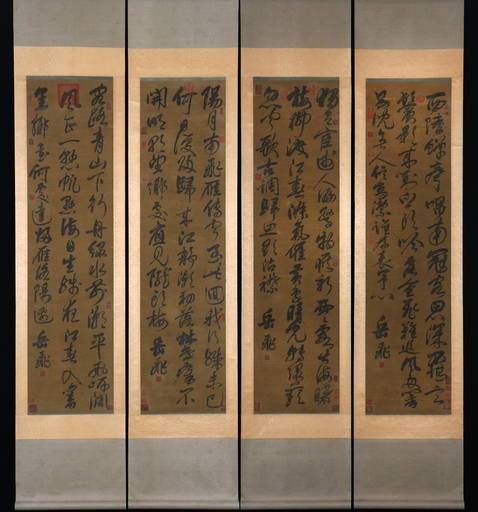 西陸蟬聲唱南冠客思深那堪玄
鬢影來對白頭吟露重飛難進風多響
易沈無人信高潔誰為表予心
岳飛
獨有宦遊人偏驚物候新雲霞出海曙
梅柳渡江春淑氣催黃鳥晴光轉綠蘋
忽聞歌古調歸思欲沾襟
岳飛
陽月南飛雁傳聞至此回我行殊未已
何日復歸來江靜潮初落林昏瘴不
開明朝望鄉處應見隴頭梅
岳飛
客路青山下行舟綠水前潮平兩岸闊
風正一帆懸海日生殘夜江春入舊
年鄉書何處達歸雁洛陽邊
岳飛